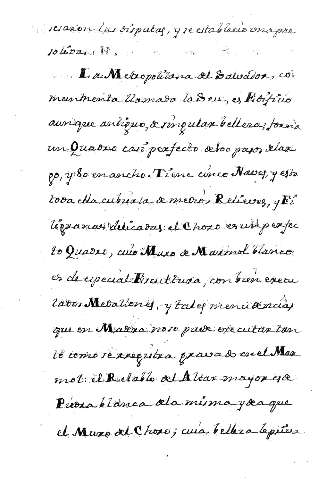 cesaron las disputas, y se establecio una pre
La Metropolitana del Salvador, co-
munmente llamada la Seu, es Edificio
aunque antiguo, de singular belleza; forma
un Quadro casi perfecto de 600 pasos de lar
go, y 80 en ancho. Tiene cinco Naves, y esta
toda ella cubierta de medios Relieves, y Fi
ligranas delicadas: el Choro es un perfec
to Quadro, cuio Muro de Marmol blanco
es de especial Escultura, con bien execu
tados Medallones, y tales menudencias
que en Madera no se puede executar tan
to como se registra gravado en el Mar
mol: el Retablo del Altar mayor es de
Piedra blanca de la misma
el Muro del Choro; cuia belleza